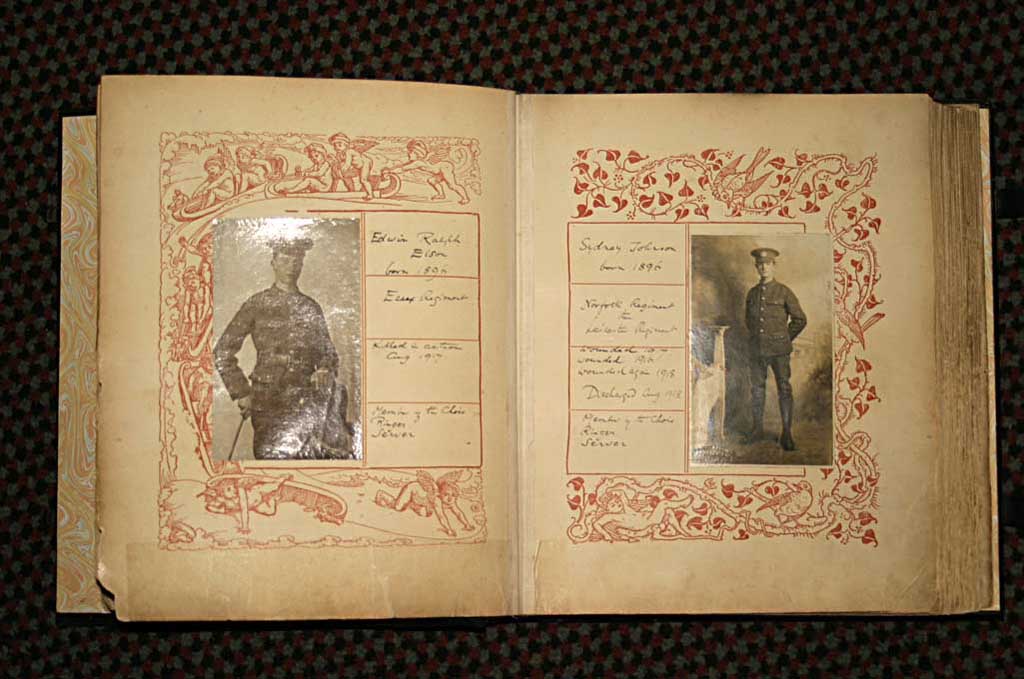 Edwin Ralph
born 1896
Essex Regiment
Killed in action
Aug 1917
Member of the Choir
Ringer
Server
Sydney Johnson
born 1896
Norfolk Regiment
then
Leicester Regiment
wounded
wounded 1916
wounded again 1918
Discharged Aug 1918
Member of the Choir
Ringer
Server